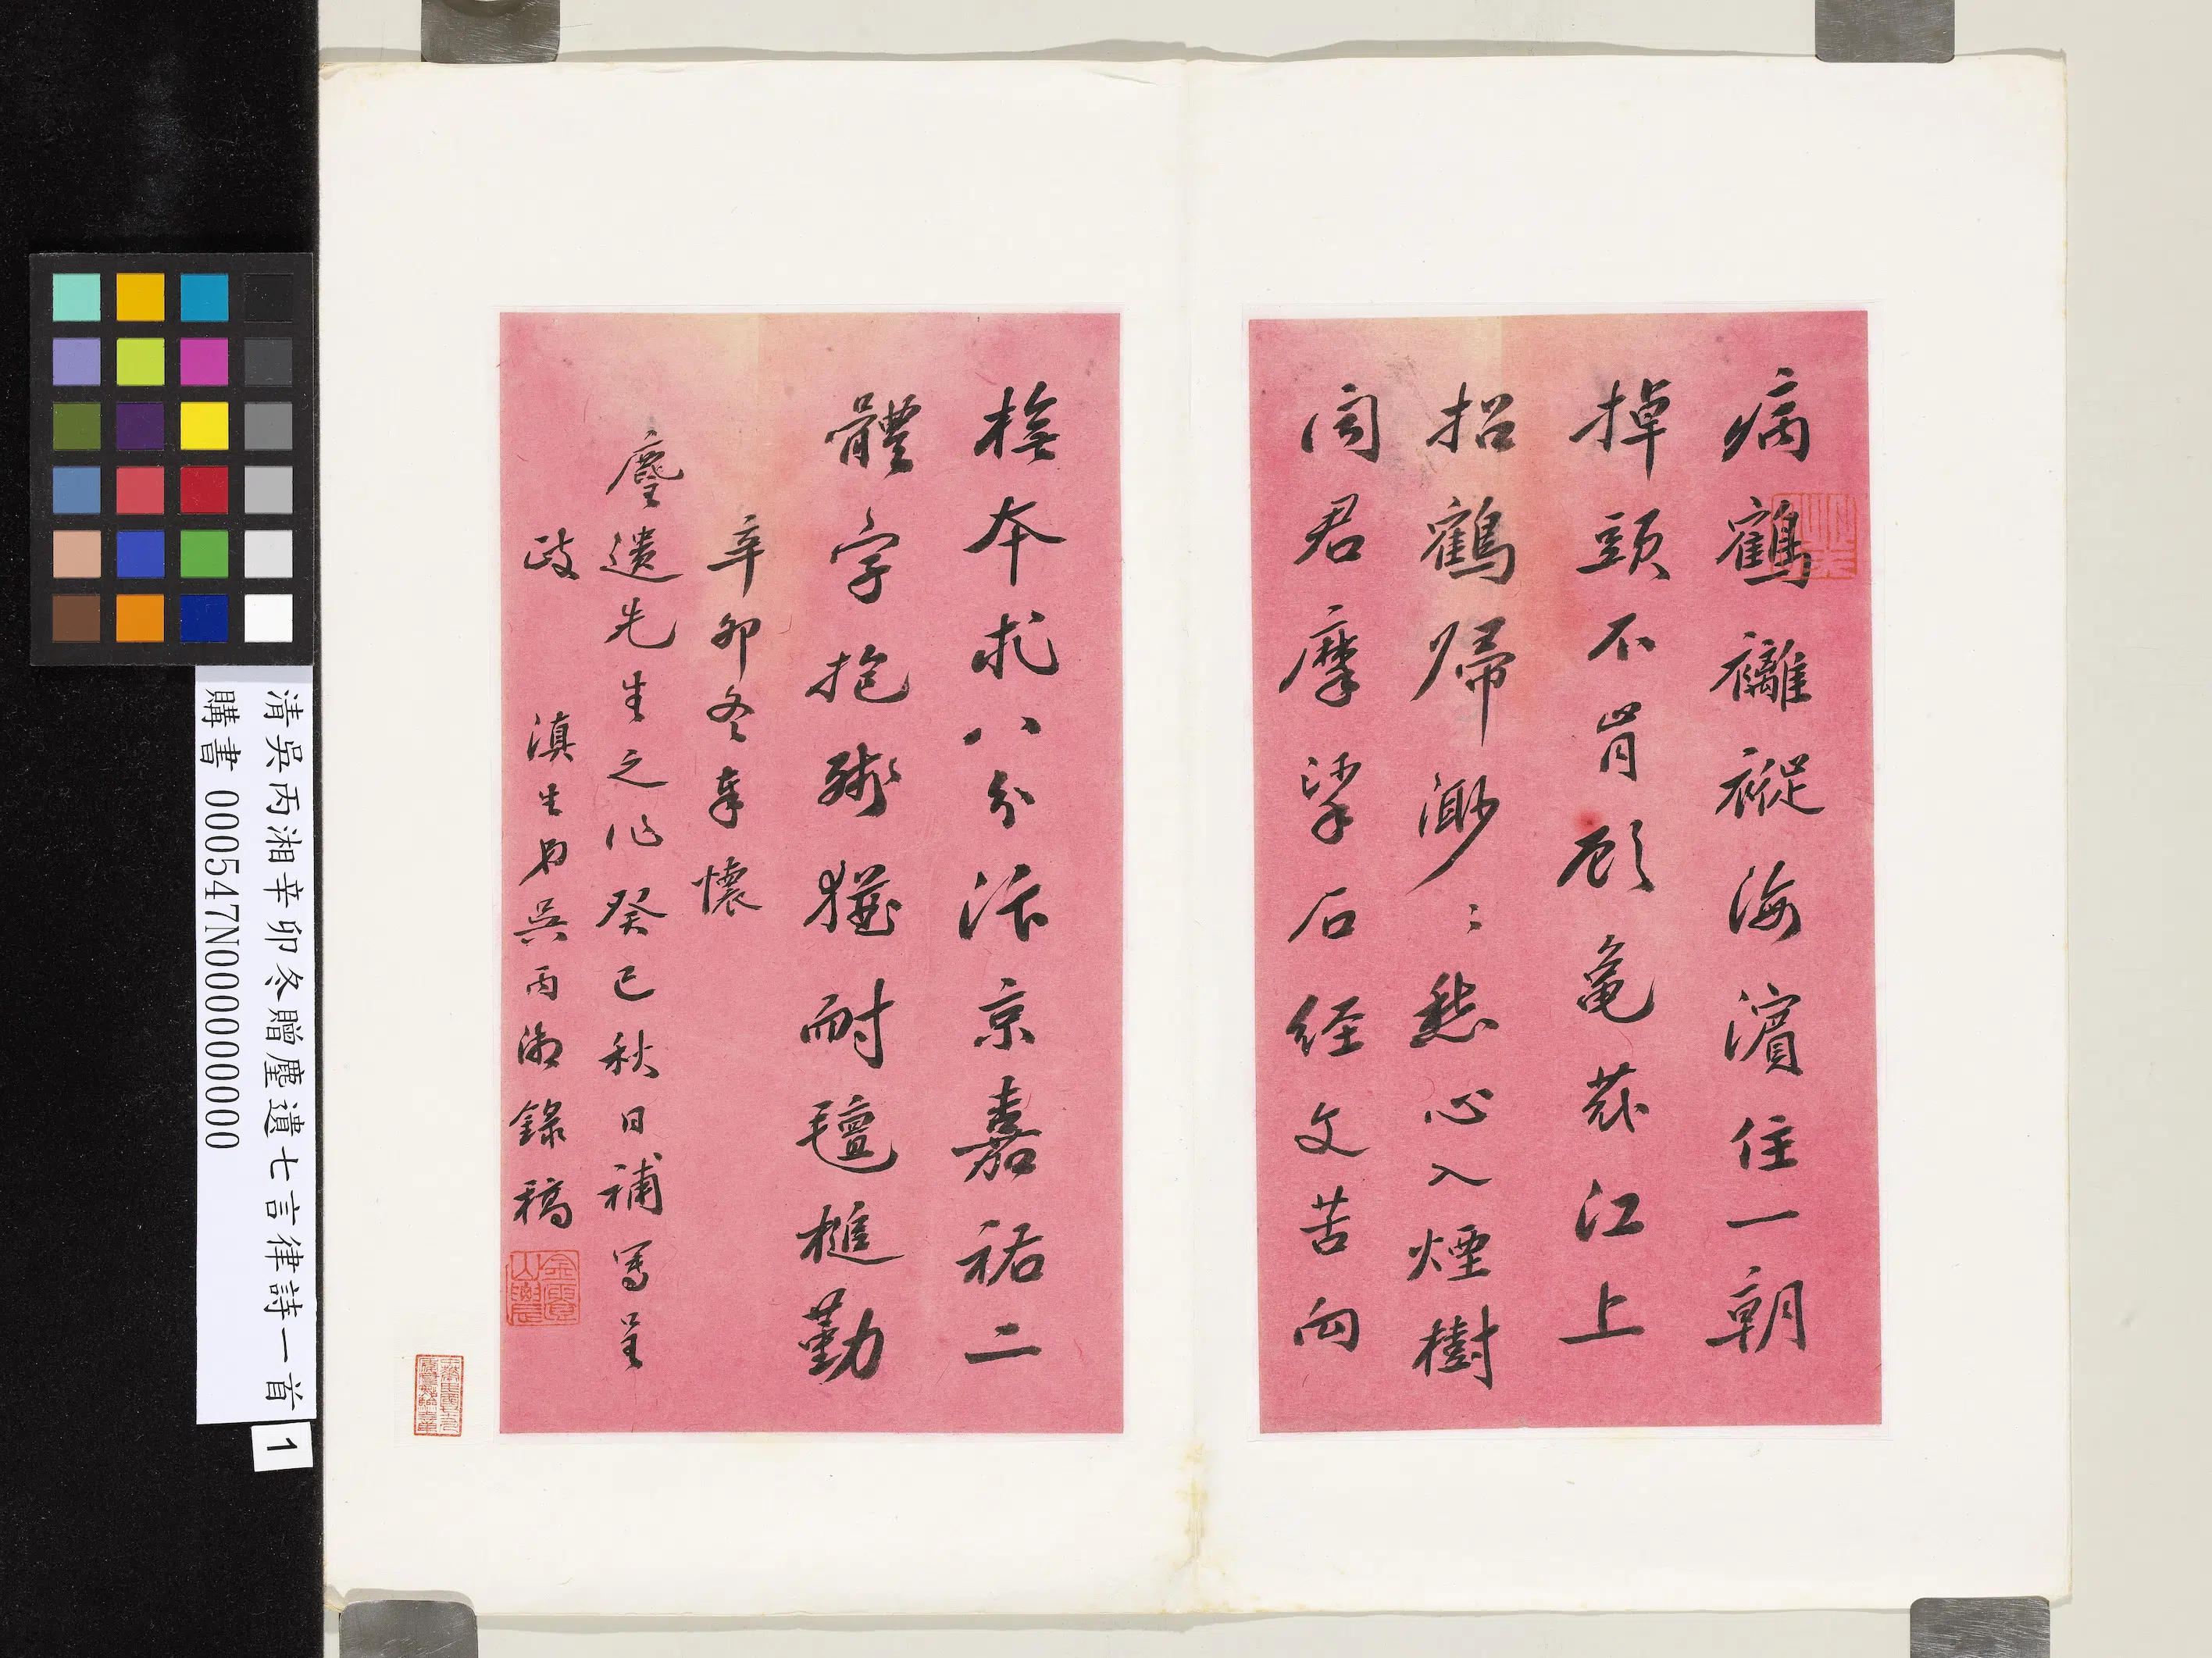 病鶴褵褷海濱住一朝
掉頭不肯顧龜蒙江上
招鶴歸渺〻愁心入煙樹
聞君摩挲石經文苦向
搨本求八分汴京嘉祐二
體字抱殘猶耐氊槌勤
辛卯冬奉懷
麈遺先生之作癸巳秋日補寫呈
政
滇生弟吳丙湘錄稿
清吳丙湘辛卯冬贈麈遺七言律詩一首
購書 000547N000000000
1